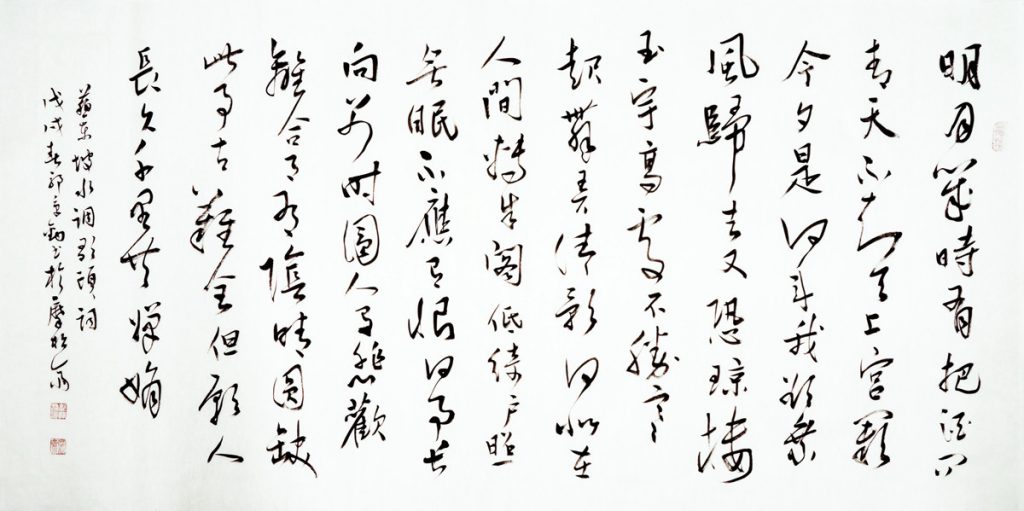 明月幾時有把酒问
青天不知天上宫闕
今夕是何年我欲乘
風歸去又恐琼樓
玉宇高處不勝寒
起舞弄清影何似在
人間轉朱阁低绮户照
無眠不應有恨何事长
向别时圆人有悲歡
離合月有陰晴圆缺
此事古難全但願人
長久千里共嬋娟
蘇東坡水调歌頭词
戊戌春郭书於